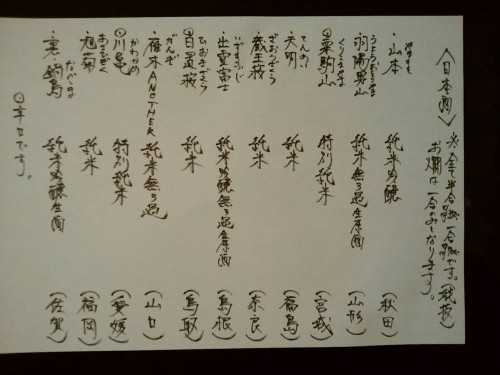 〈日本酒〉 ※全て半合 一合 です。(税抜)
お燗は一合のみとなります。
やまもと
・山本 純米吟醸 (秋田)
うようおとこやま
・羽陽男山 純米無ろ過生原酒 (山形)
くりこまやま
栗駒山 特別純米 (宮城)
てんめい
・天明 純米 (福島)
ざおうざくら
・蔵王桜 純米 (奈良)
いずもふじ
・出雲富士 純米吟醸無ろ過生原酒 (島根)
ひおきざくら
日置桜 純米 (鳥取)
がんぎ
・雁木ANOTHER 純米無ろ過 (山口)
かわかめ
川亀 特別純米 (愛媛)
あさひぎく
・旭菊 純米 (福岡)
なべしま
・裏・鍋島 純米吟醸生酒 (佐賀)
辛口です。